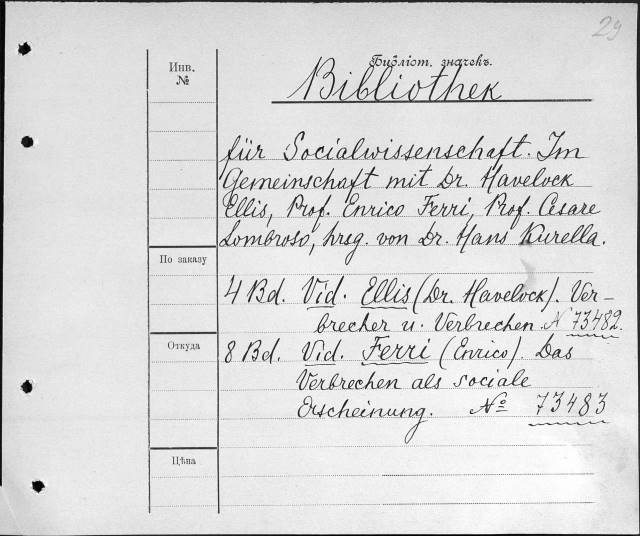 29
Инв.
№
Библіот. значекъ.
Bibliothek
für Socialwissenschaft. Im
Gemeinschaft mit Dr. Havelock
Ellis, Prof. Enrico Ferri, Prof. Cesare
Lombroso, hrsg. von Dr. Hans Kurella.
По заказу
4 Bd. Vid. Ellis (Dr. Havelock). Ver-
brecher u. Verbrechen. N 73482.
Откуда
8 Bd. Vid. Ferri (Enrico). Das
Verbrechen als sociale
Erscheinung. № 73483
Цѣна